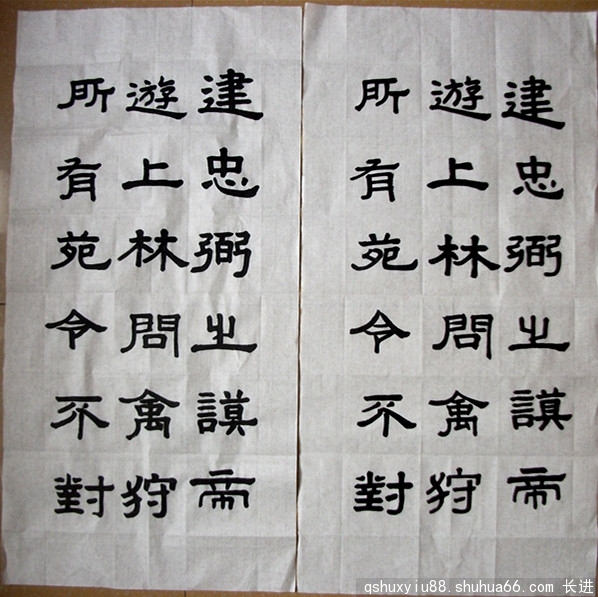 建忠弼之謨帝
遊上林問禽狩
所有苑令不對
建忠弼之謨帝
遊上林問禽狩
所有苑令不對
qshuxyiu88.shuhua66.com 长进